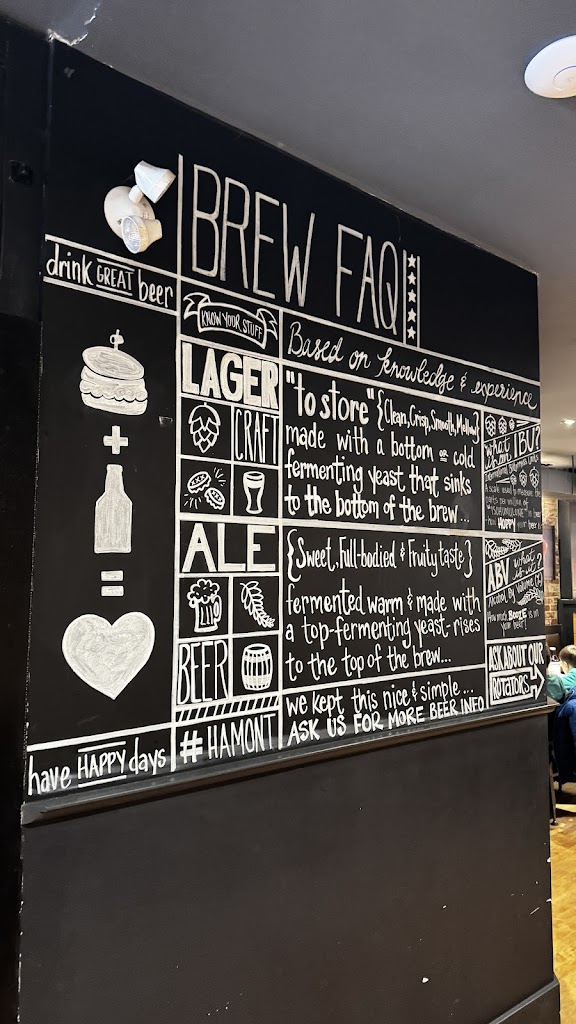 BREW FAQ
drink GREAT beer
KNOW YOUR STUFF
Based on knowledge & experience
LAGER
CRAFT
"to store" {Clean, Crisp, Smooth, Mellow}
made with a bottom or cold
fermenting yeast that sinks
to the bottom of the brew...
ALE
BEER
{Sweet, Full-bodied & Fruity taste}
fermented warm & made with
a top-fermenting yeast-rises
to the top of the brew...
we kept this nice & simple...
ASK US FOR MORE BEER INFO
what
is an IBU?
International Bitterness Units
A scale used to measure the
how HOPPY your beer is
ABV what is it?
Alcohol By Volume
How much BOOZE is in
your beer!
ASK ABOUT OUR
ROTATORS
+
=
have HAPPY days
#HAMONT